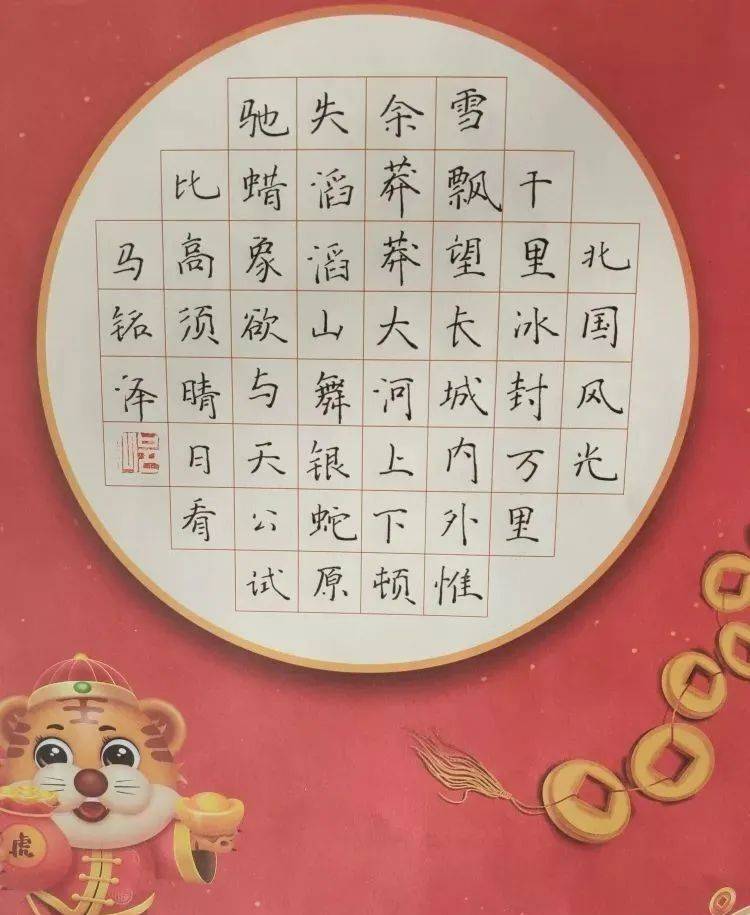 北国风光
千里冰封万里
雪飘望长城内外惟
余莽莽大河上下顿
失滔滔山舞银蛇原
驰蜡象欲与天公试
比高须晴日看
马铭泽
虎